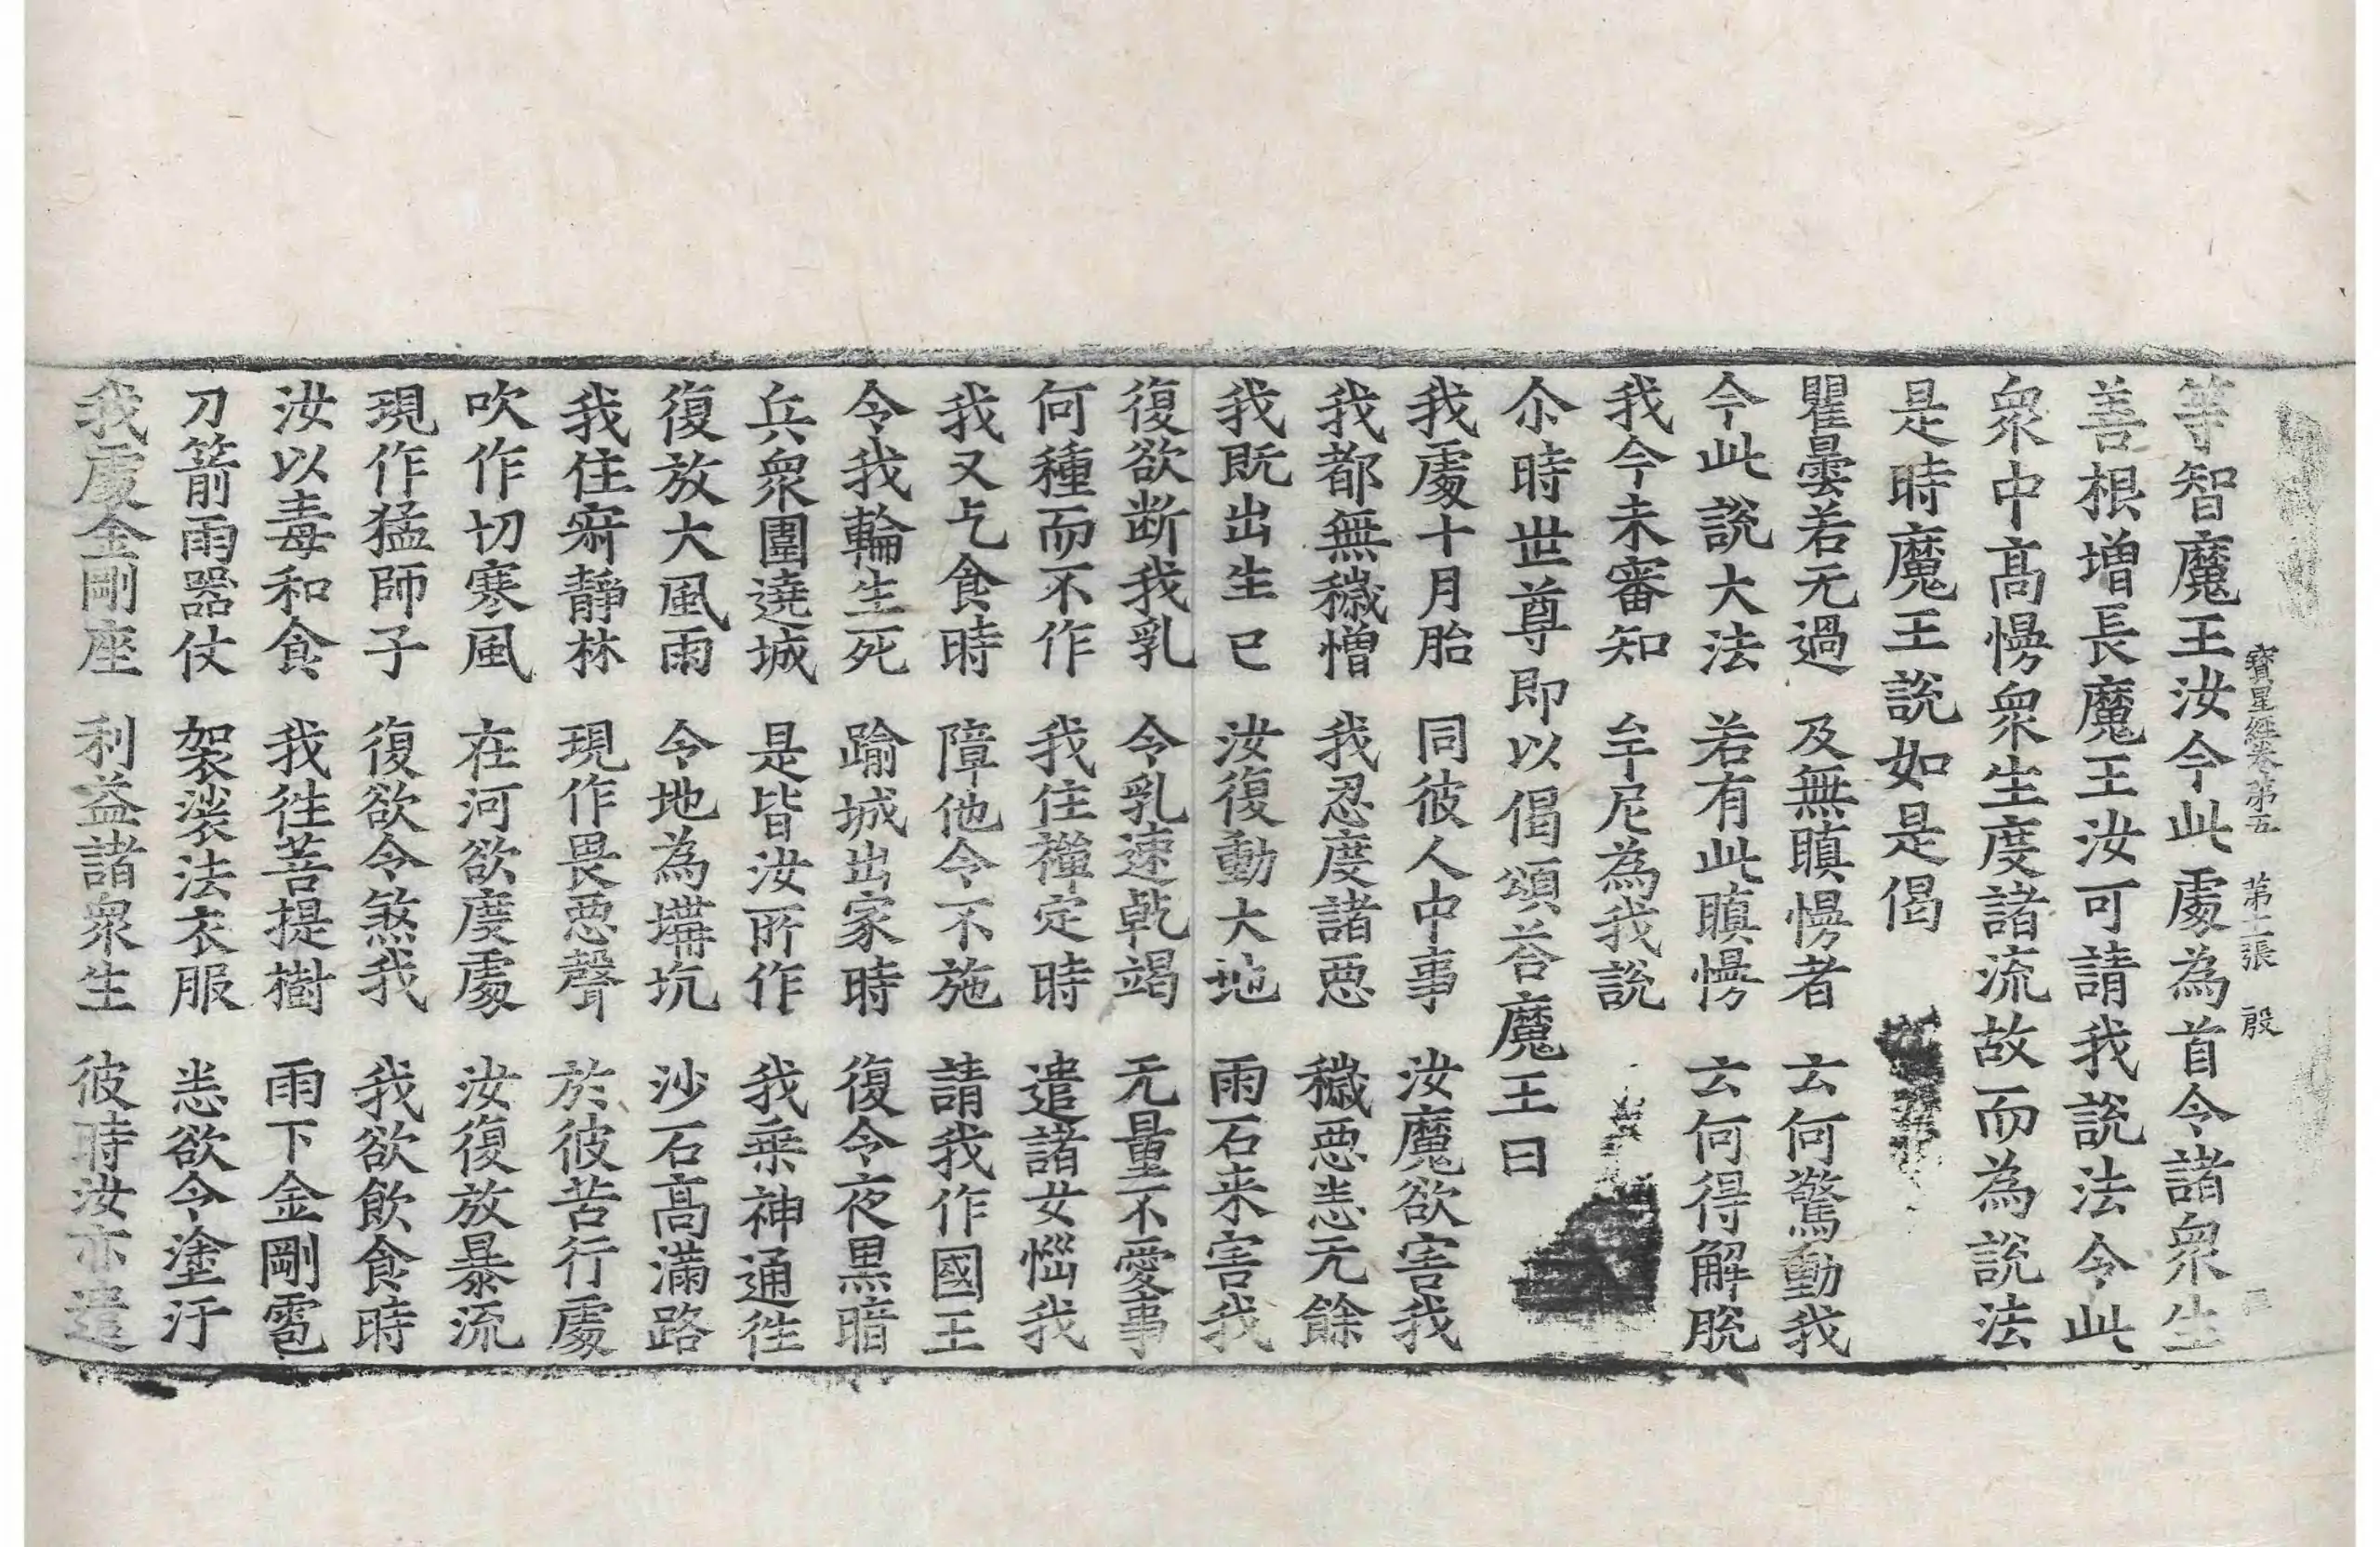 寶星經卷第五 第十張 殷
等智魔王汝今此處為首令諸衆生
善根增長魔王汝可請我說法今此
衆中高慢衆生度諸流故而為說法
是時魔王說如是偈
瞿曇若无過 及無瞋慢者 云何驚動我
今此說大法 若有此瞋慢 云何得解脫
我今未審知 牟尼為我說
尒時世尊即以偈頌荅魔王曰
我處十月胎 同彼人中事 汝魔欲害我
我都無穢憎 我忍度諸惡 穢惡恚无餘
我既出生已 汝復動大地 雨石来害我
復欲断我乳 令乳速乾竭 无量不愛事
何種而不作 我住禪定時 遣諸女惱我
我又乞食時 障他令不施 請我作國王
令我輪生死 踰城出家時 復令夜黒暗
兵衆圍遶城 是皆汝所作 我乘神通徃
復放大風雨 令地為堈坑 沙石高滿路
我住寂靜林 現作畏惡聲 於彼苦行處
吹作切寒風 在河欲度處 汝復放暴流
現作猛師子 復欲令煞我 我欲飲食時
汝以毒和食 我徃菩提樹 雨下金剛雹
刀箭雨器仗 袈裟法衣服 恚欲令塗汙
我處金剛座 利益諸衆生 彼時汝亦遣